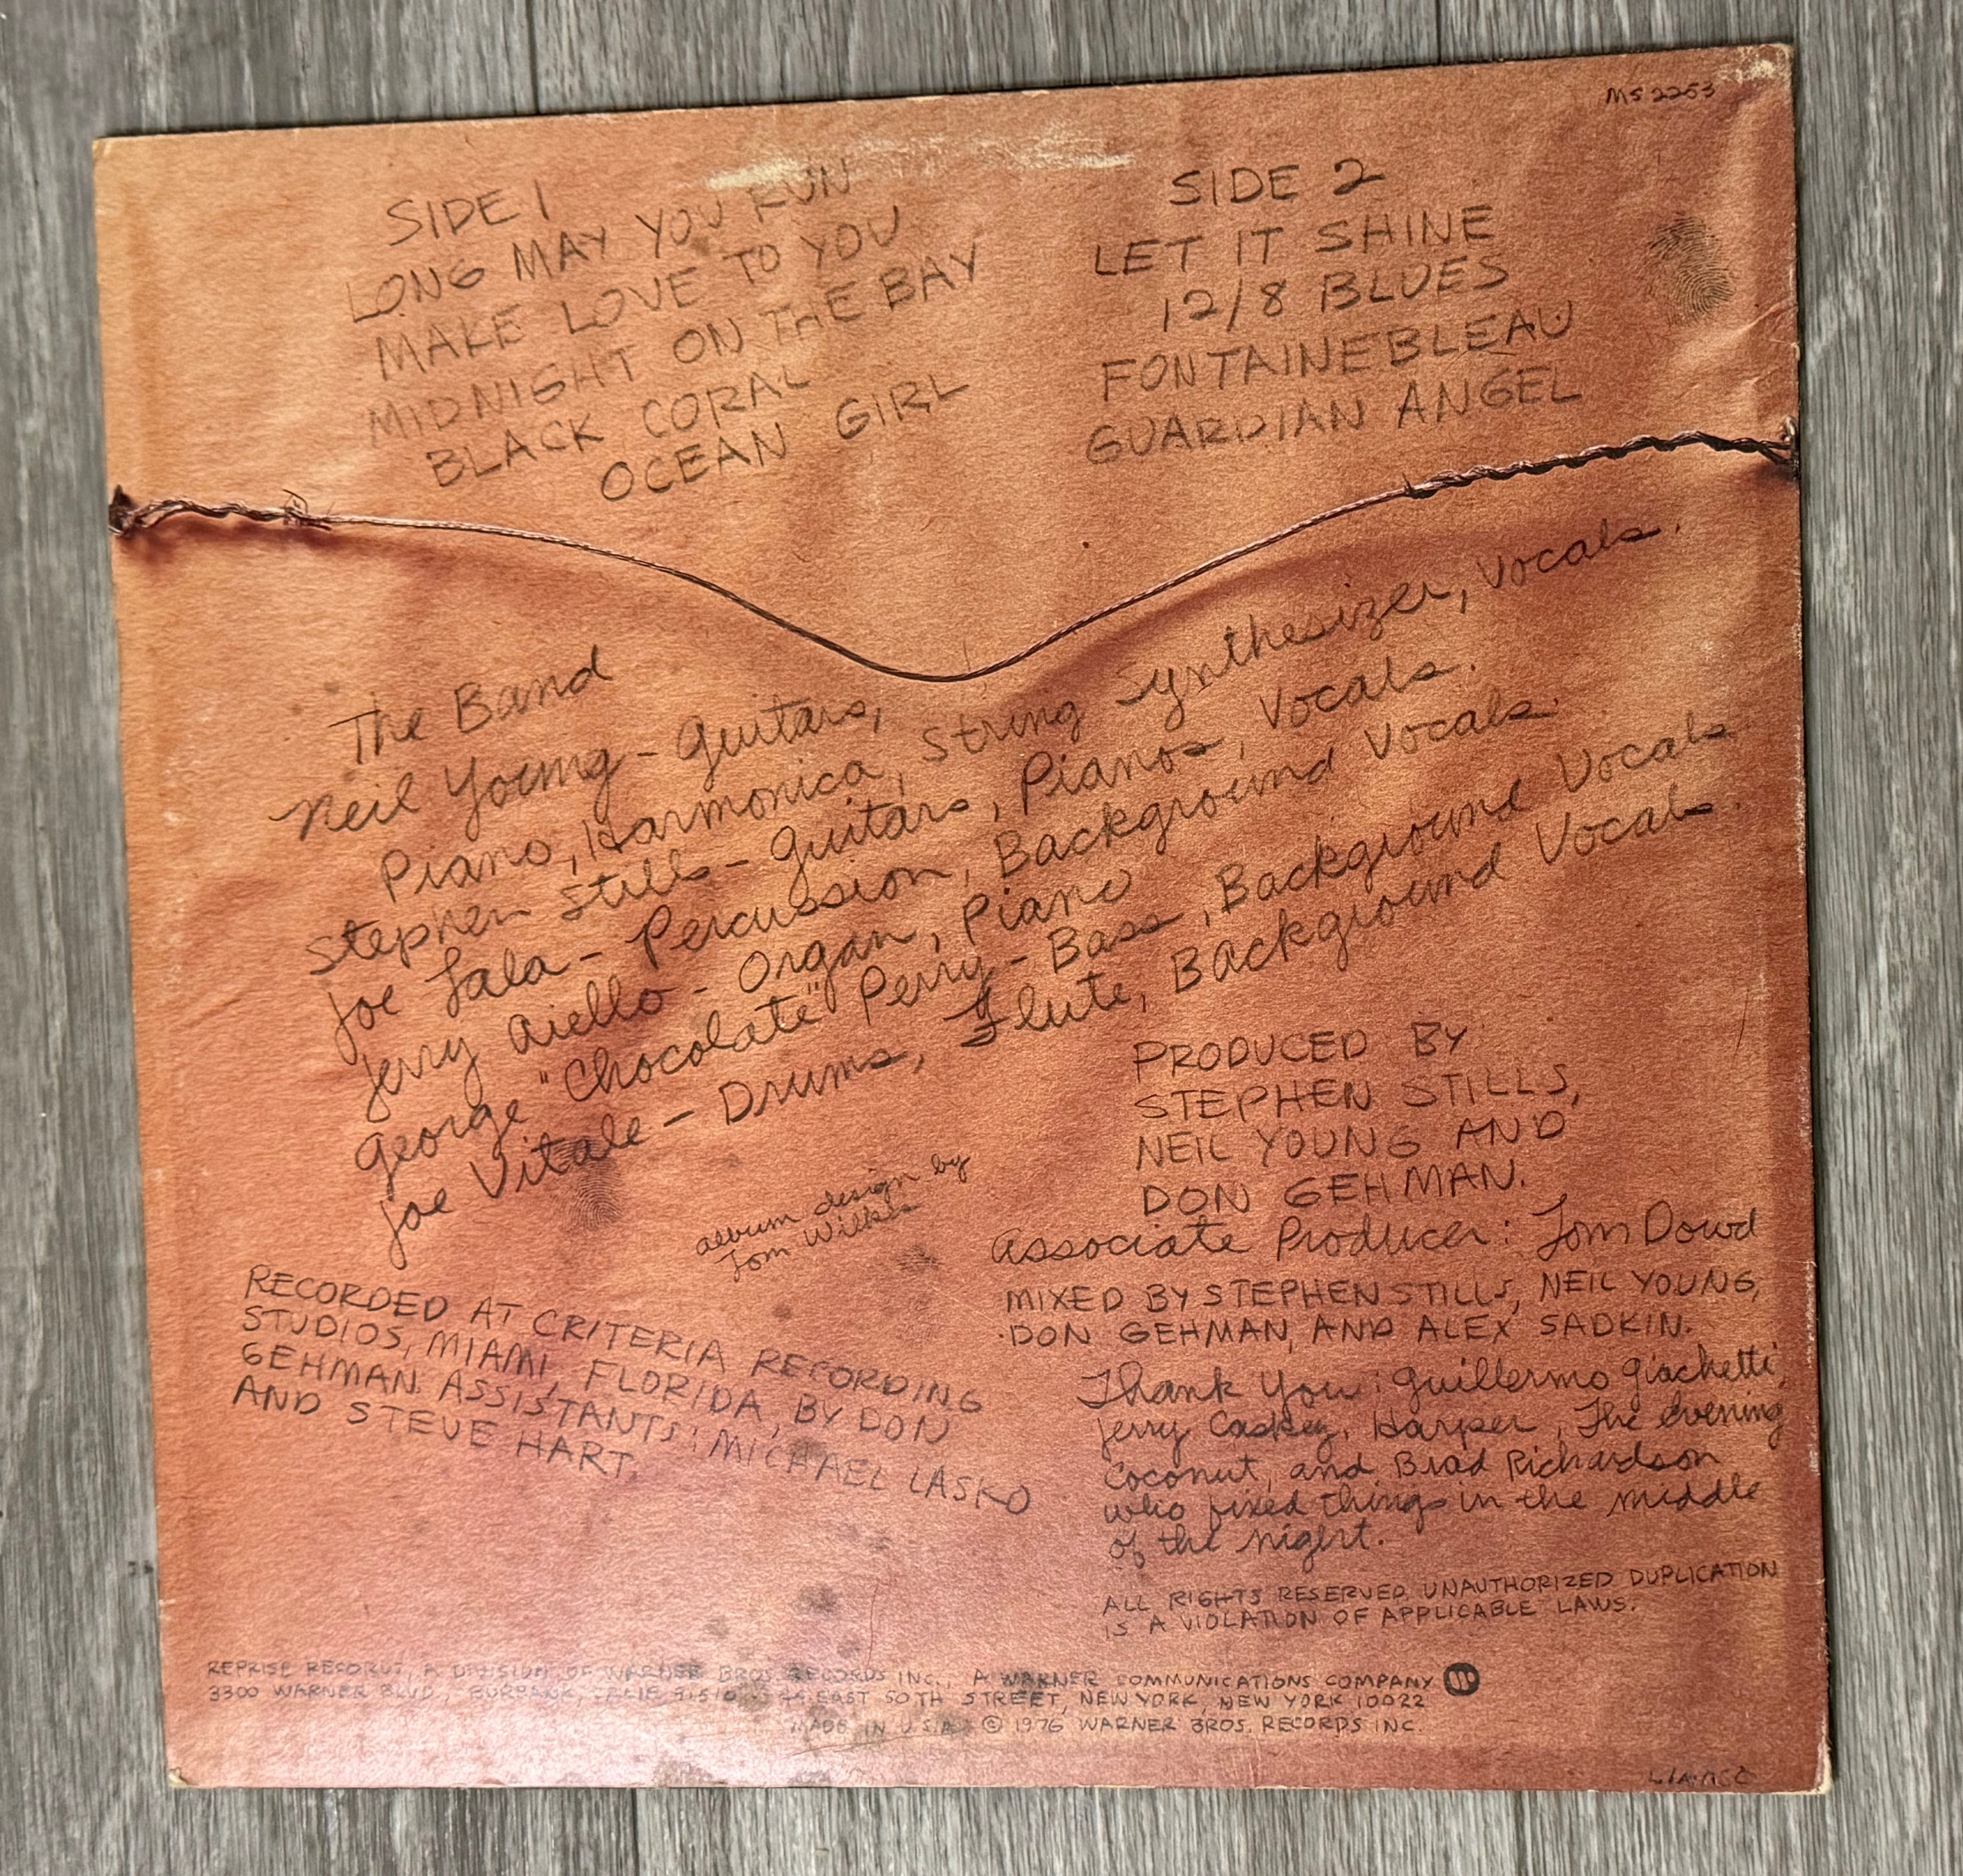 MS 2253
SIDE 1
LONG MAY YOU RUN
MAKE LOVE TO YOU
MIDNIGHT ON THE BAY
BLACK CORAL
OCEAN GIRL
SIDE 2
LET IT SHINE
12/8 BLUES
FONTAINEBLEAU
GUARDIAN ANGEL
The Band
Neil Young - Guitars,
Piano, Harmonica, String Synthesizer, Vocals.
Stephen Stills - Guitars, Pianos, Vocals.
Joe Lala - Percussion, Background Vocals.
Jerry Aiello - Organ, Piano
George "Chocolate" Perry - Bass, Background Vocals
Joe Vitale - Drums, Flute, Background Vocals.
album design by
Tom Wilkes
RECORDED AT CRITERIA RECORDING
STUDIOS, MIAMI, FLORIDA, BY DON
GEHMAN. ASSISTANTS: MICHAEL LASKO
AND STEVE HART.
PRODUCED BY
STEPHEN STILLS,
NEIL YOUNG AND
DON GEHMAN.
Associate Producer: Tom Dowd
MIXED BY STEPHEN STILLS, NEIL YOUNG,
DON GEHMAN, AND ALEX SADKIN.
Thank You: Guillermo Giachetti,
Jerry Caskey, Harper, The evening
Coconut, and Brad Richardson
who fixed things in the middle
of the night.
ALL RIGHTS RESERVED. UNAUTHORIZED DUPLICATION
IS A VIOLATION OF APPLICABLE LAWS.
REPRISE RECORDS, A DIVISION OF WARNER BROS. RECORDS INC., A WARNER COMMUNICATIONS COMPANY
3300 WARNER BLVD., BURBANK, CALIF. 91510 · 44 EAST 50TH STREET, NEW YORK, NEW YORK 10022
MADE IN U.S.A. © 1976 WARNER BROS. RECORDS INC.